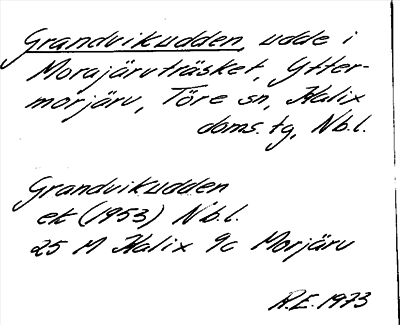 Grandvikudden, udde i
Morajärvträsket, Ytter-
morjärv, Töre sn, Kalix
doms. tg, Nb.l.
Grandvikudden
ek (1953) Nb.l.
25 M Kalix 9c Morjärv
R.E. 1973